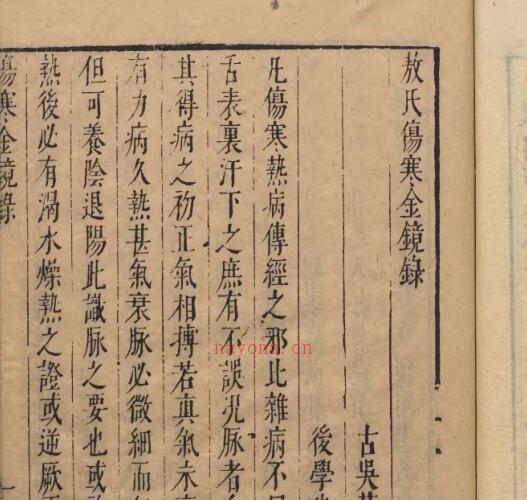 敖氏傷寒金鏡錄
古吳
後學
凡傷寒熱病傳經之邪比雜病不
舌表裏汗下之庶有不誤況脉者
其得病之初正氣相搏若真氣未
有力病久熱甚氣衰脉必微細而
但可養陰退陽此識脉之要也或
熱後必有渴水燥熱之證或逆厥
傷寒金鏡錄
nayona.cn